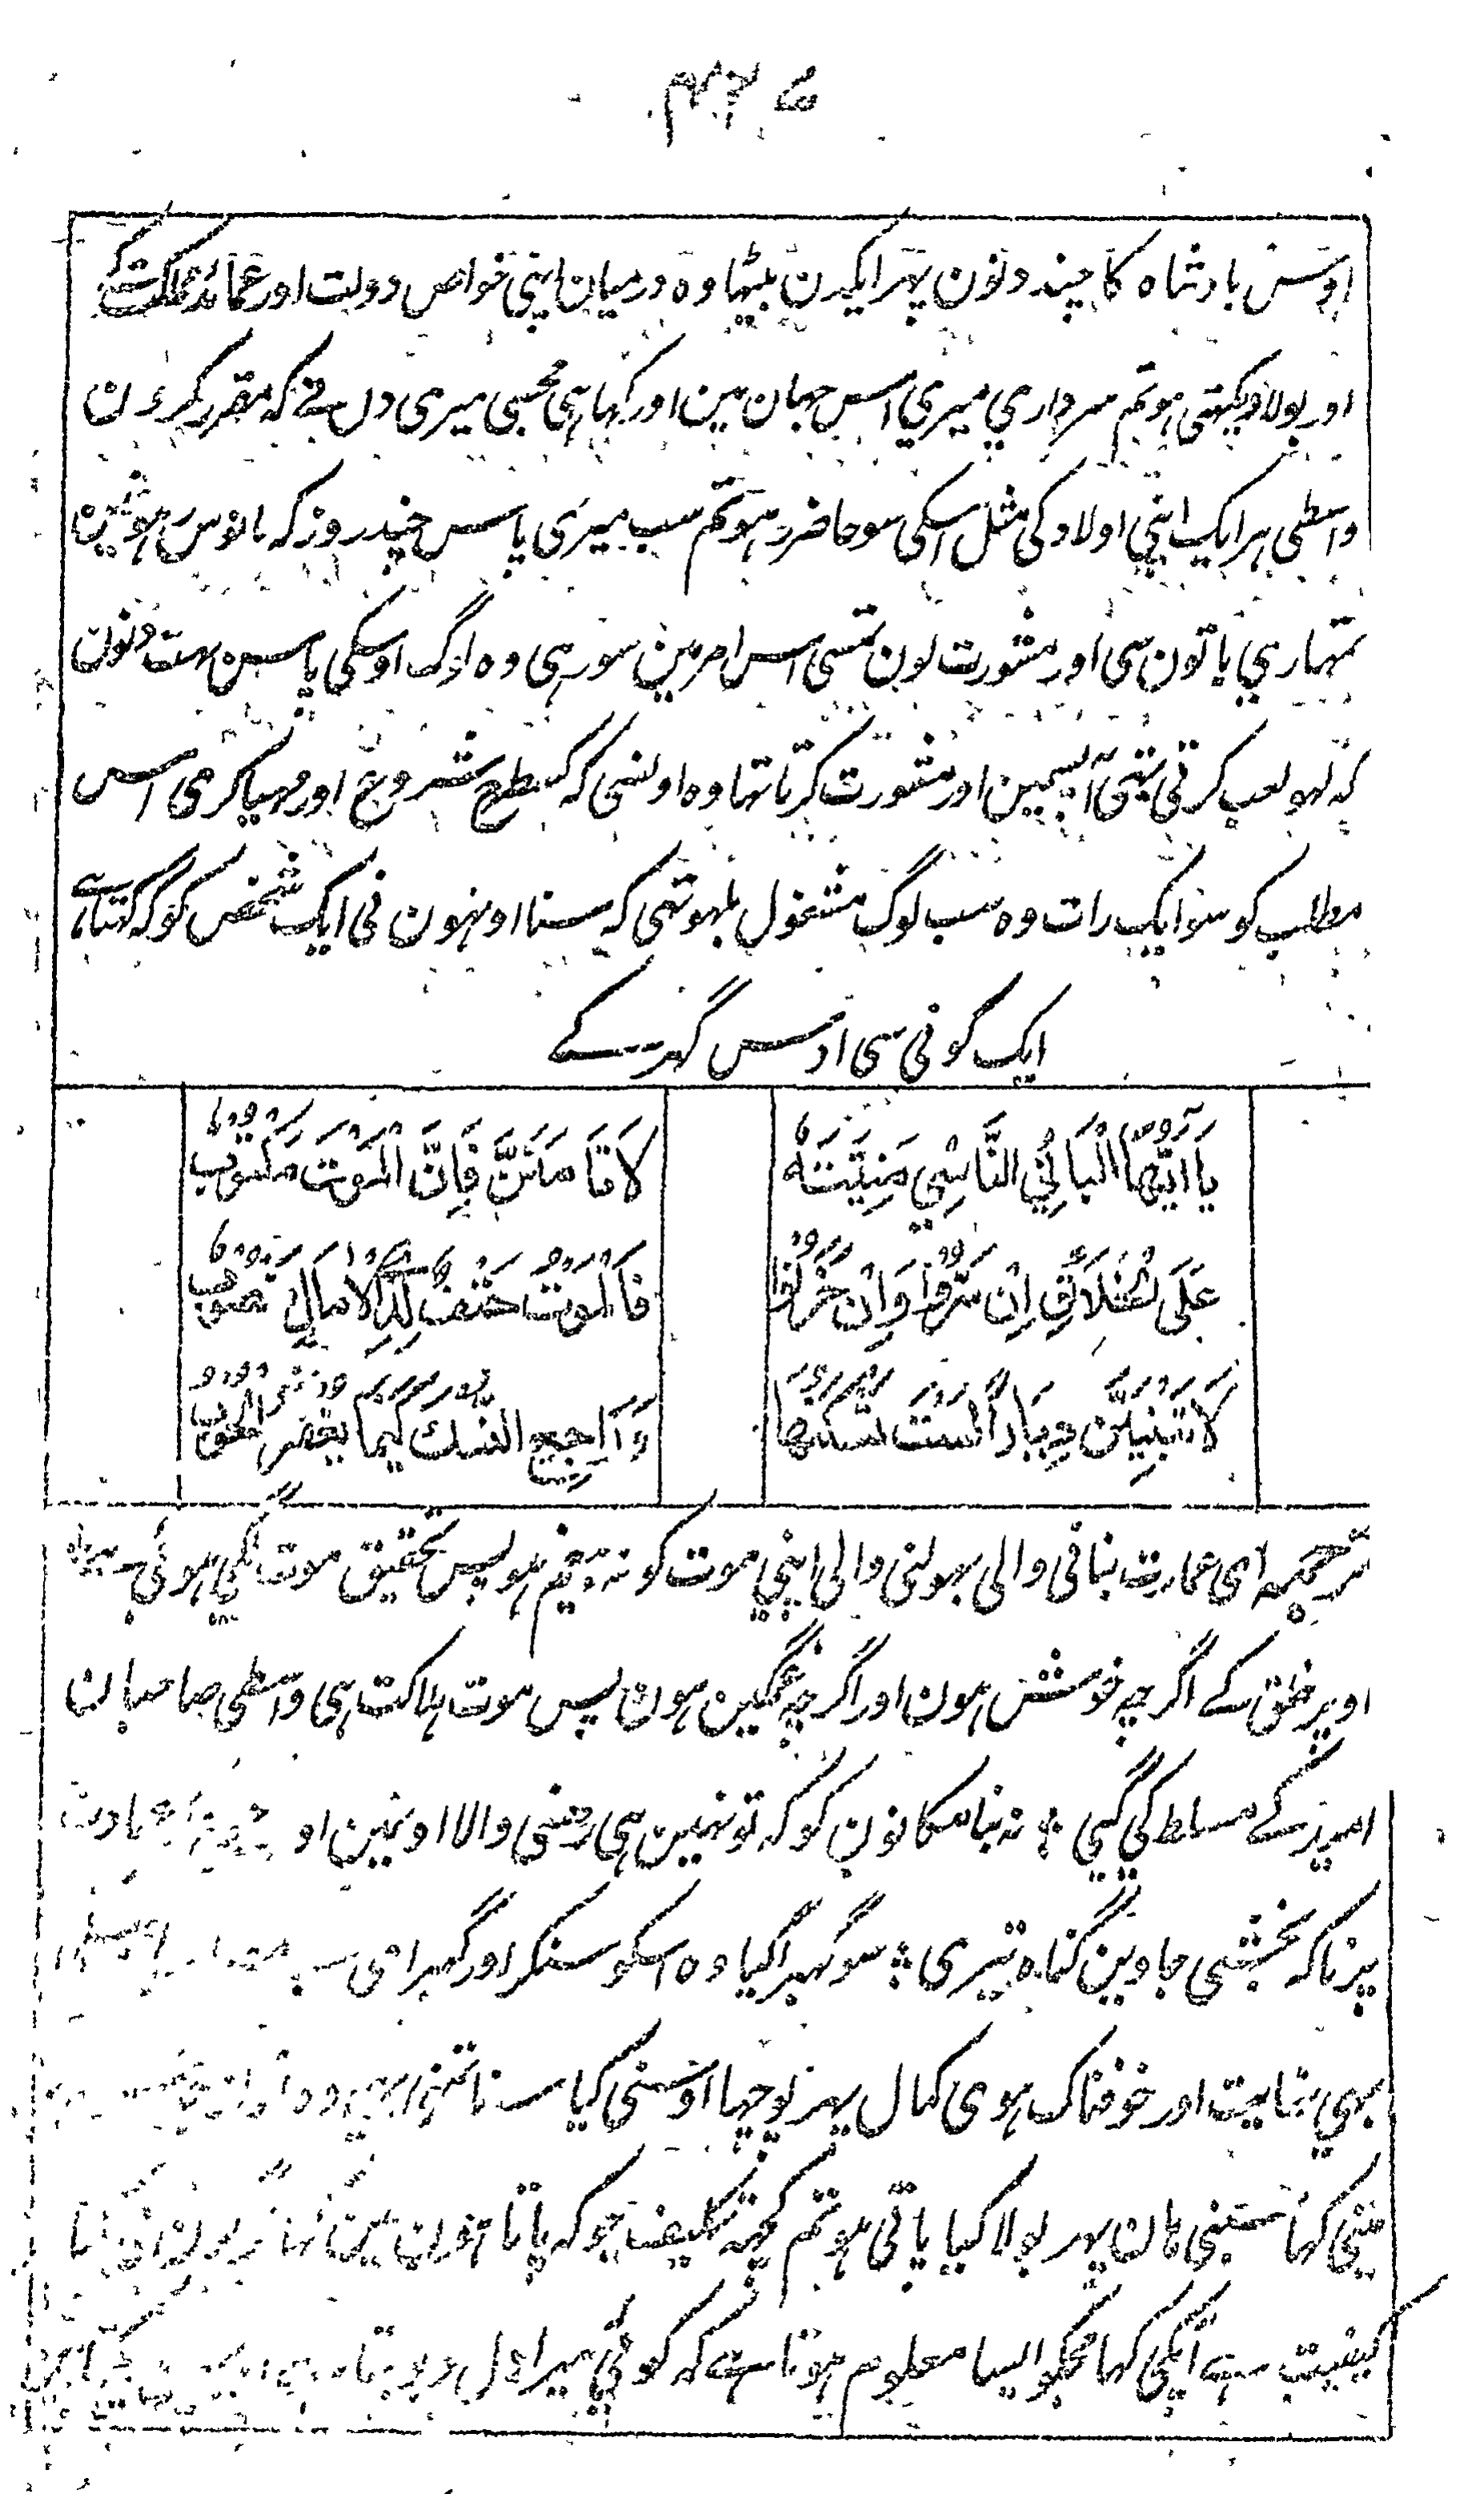 اوس بادشاہ کا چند دنون پہر ایکدن بیٹھا وہ درمیان اپنی خواص دولت اور عمائد مملکت کے
اور بولا دیکہتی ہو تم سرداری میری اس جہان مین اور کہا ہی مجسی میری دل نے کہ مقرر کرون
واسطی ہر ایک اپنی اولاد کی مثل اسکی سو حاضر رہو تم سب میری پاس چند روز کہ مانوس ہون مین
تمہاری باتون سی اور مشورت لون تمسی اس امر مین سو رہی وہ لوگ اوسکی پاس بہت دنون
کہ لہو لعب کرتی تہی آپسمین اور مشورت کرتا تہا وہ اونسی کہ کسطرح شروع اور مہیا کری اس
مطلب کو سو ایک رات وہ سب لوگ مشغول بلہو تہی کہ سنا اونہون نی ایک شخص کو کہ کہتا ہے
ایک کونی سی اوس گہر کے
يَا اَيُّهَا الْبَانِيُ النَّاسِيُ مَنِيَّتَهُ
لَا تَا مَنَنَّ فَاِنَّ الْمَوْتَ مَكْتُوبُ
عَلَى الْخَلَائِقِ اِنْ سَرُّوْا وَاِنْ حَزِنُوْا
فَالْمَوْتُ حَتْفٌ لِذِي الْاٰمَالِ مَنْصُوْبُ
لَا تَبْنِيَنَّ دِيَارًا لَسْتَ تَسْكُنُهَا
وَرَاجِعِ النُّسْكَ كَيْمَا يُغْفَرُ الْحُوْبُ
ترجمہ ای عمارت بنانی والی بہولنی والی اپنی موت کو نہ بیغم ہو پس تحقیق موت لکہی ہوئی ہے
اوپر خلق کے اگرچہ خوش ہون اور اگرچہ غمگین ہون پس موت ہلاکت ہی واسطی صاحبان
امید کے مسلط کی گئی ؛ نہ بنا مکانون کو کہ تو نہین ہی رہنی والا اونمین او عبادت
پر تاکہ بخشی جاوین گناہ تیری ؛ سو گہبرا گیا وہ اسکو سنکر اور گہبرا ئی
بہی نہایت اور خوفناک ہوی کمال پہر پوچہا اوسنی کیا سنا تمنی بہی وہ
مینی کہا سبنی ہان پہر بولا کیا پاتی ہو تم کچہ تکلیف جو کہ پاتا ہون مین کہا
کیفیت ہے اسکی کہا مجکو ایسا معلوم ہوتا ہے کہ کوئی میرا دل